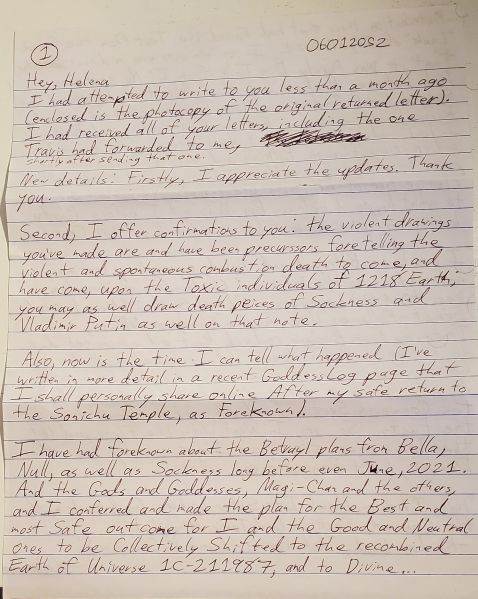 1
06012022
Hey, Helena
I had attempted to write to you less than a month ago
(enclosed is the photocopy of the original returned letter).
I had received all of your letters, including the one
Travis had forwarded to me,
shortly after sending that one.
New details: Firstly, I appreciate the updates. Thank
you.
Second, I offer confirmations to you: the violent drawings
you've made are and have been precurssors foretelling the
violent and spontaneous combustion death to come, and
have come, upon the Toxic individuals of 1218 Earth;
you may as well draw death peices of Sockness and
Vladimir Putin as well on that note.
Also, now is the time I can tell what happened (I've
written in more detail in a recent GoddessLog page that
I shall personally share online After my safe return to
the Sonichu Temple, as foreknown).
I have had foreknown about the Betrayl plans from Bella,
Null, as well as Sockness long before even June, 2021.
And the Gods and Goddesses, Magi-Chan and the others,
and I conferred and made the plan for the Best and
most Safe outcome for I and the Good and Neutral
ones to be Collectively Shifted to the recombined
Earth of Universe 1C-211987, and to Divine...